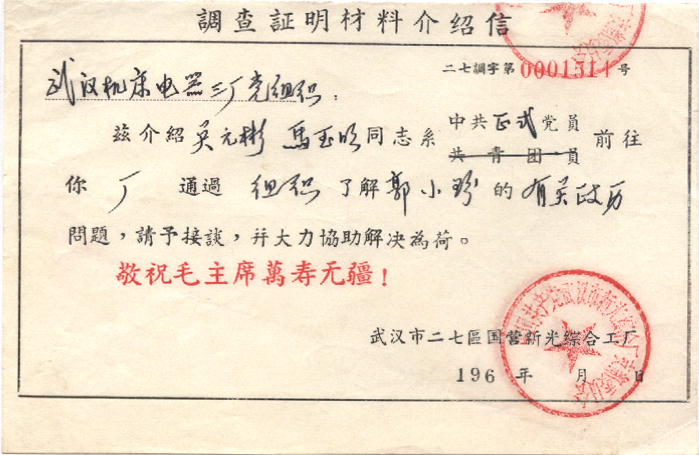 調查証明材料介绍信
二七調字第0001514号
武汉机床电器二厂党组织：
兹介紹吴元彬 馬玉明同志系中共正式党員前往
共青団員
你厂 通過 组织了解郭小珍的有关政历
問題，請予接談，幷大力協助解决為荷。
敬祝毛主席萬寿无疆！
武汉市二七區国营新光綜合工厂
196 年 月 日